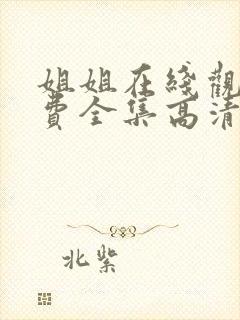 姐姐在綫觀
費全集高清
北紫